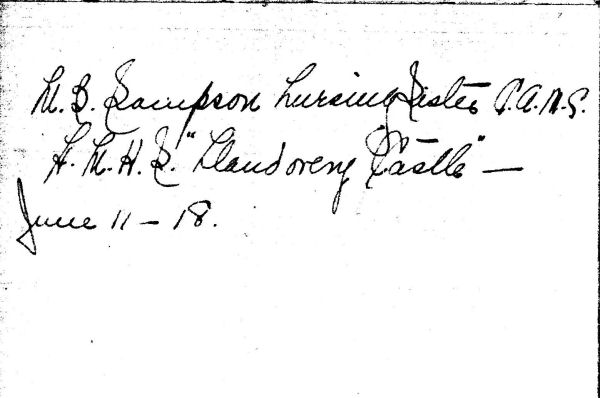 M. B. Sampson Nursing Sister C.A.N.S.
H. M. H. S. "Llandovery Castle" —
June 11 – 18.